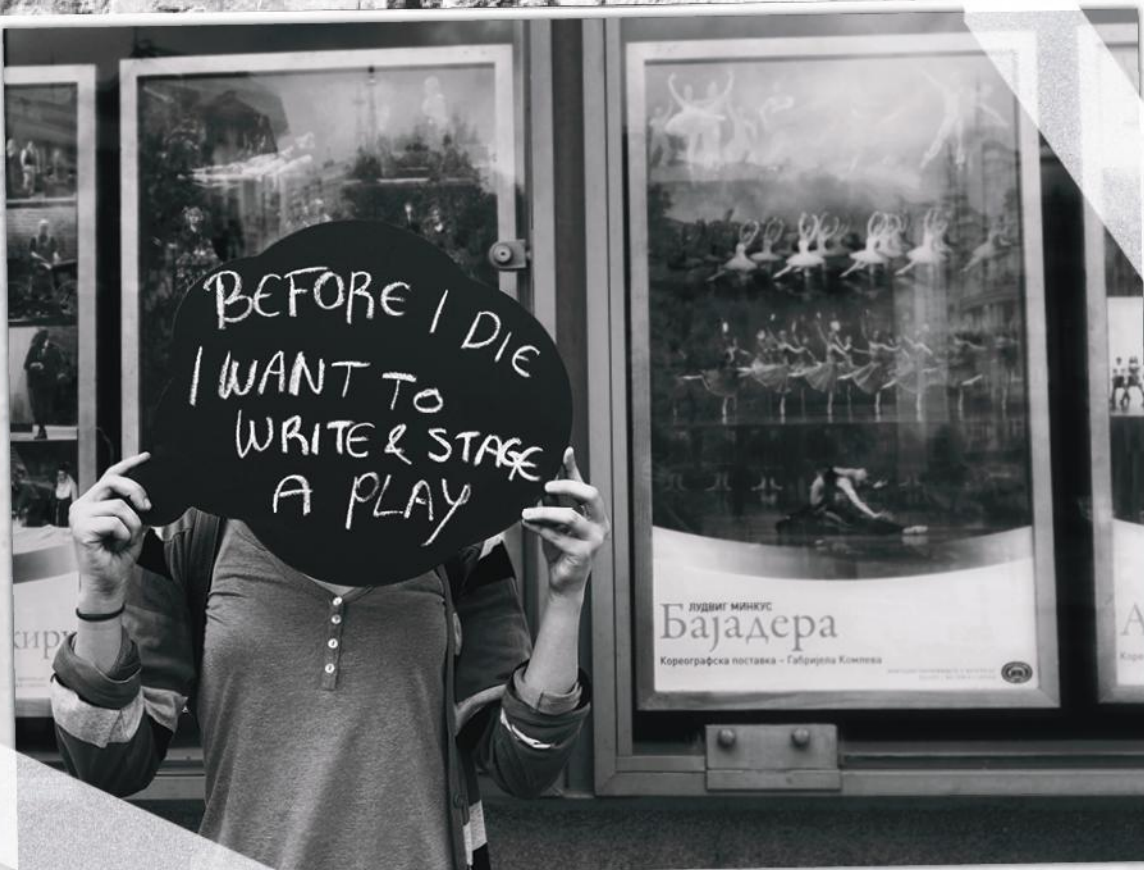 BEFORE I DIE
I WANT TO
WRITE & STAGE
A PLAY
ЛУДВИГ МИНКУС
Бајадера
Кореографска поставка – Габријела Комлева